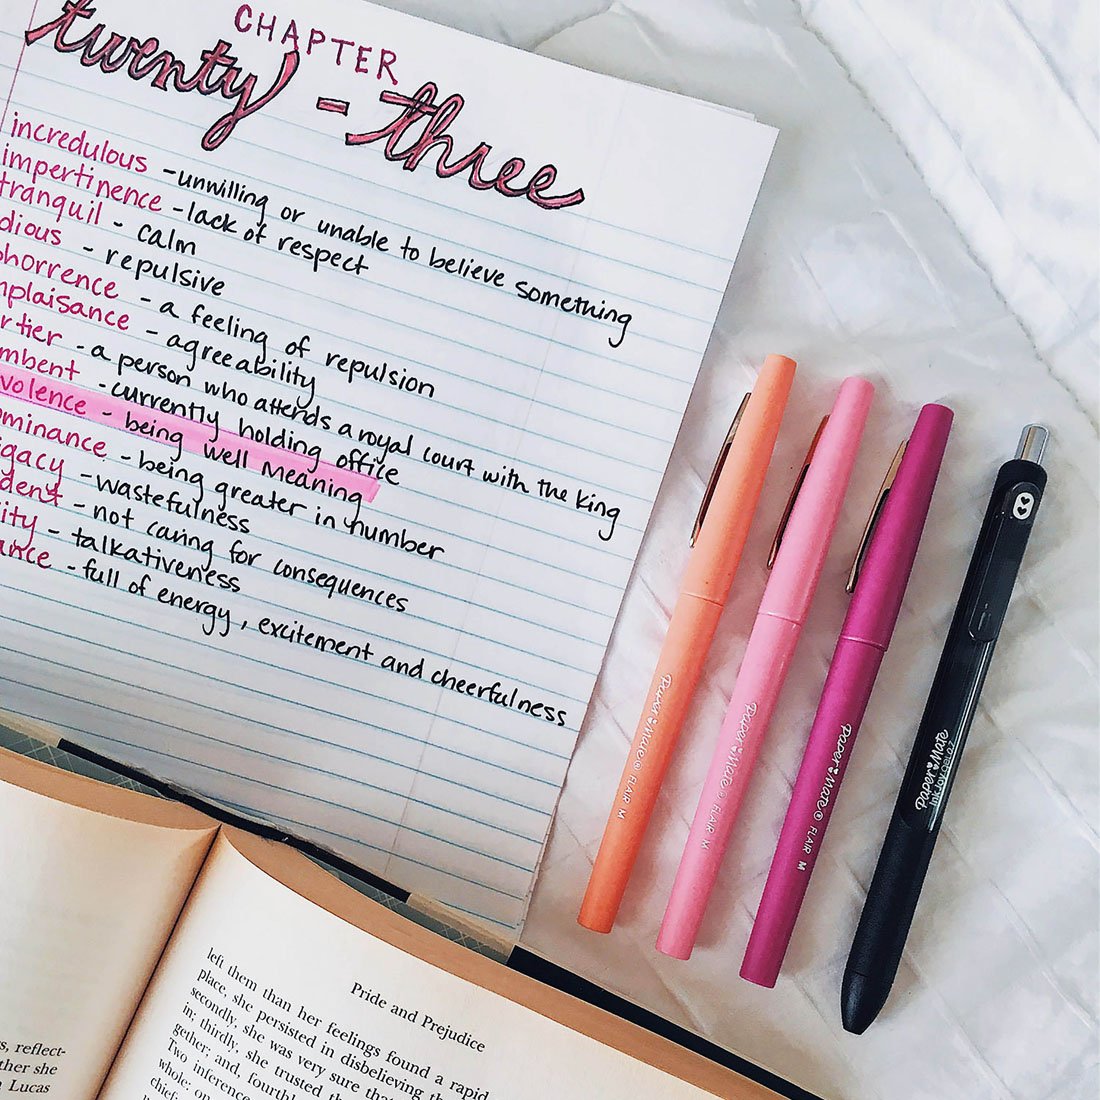 CHAPTER
twenty-three
incredulous - unwilling or unable to believe something
impertinence - lack of respect
tranquil - calm
dious - repulsive
horrence - a feeling of repulsion
mplaisance - agreeability
rtier - a person who attends a royal court with the king
mbent - currently holding office
volence - being well meaning
ominance - being greater in number
igacy - wastefulness
dent - not caring for consequences
ity - talkativeness
ance - full of energy, excitement and cheerfulness
Paper Mate® FLAIR M
Paper Mate® FLAIR M
Paper Mate® FLAIR M
Paper Mate
InkJoy gel 0.7
s, reflect-
ther she
Lucas
Pride and Prejudice
left them than her feelings found a rapid
place, she persisted in disbelieving the
secondly, she was very sure that
in; thirdly, she trusted
gether; and, fourthl
Two inference
whole: on
chief